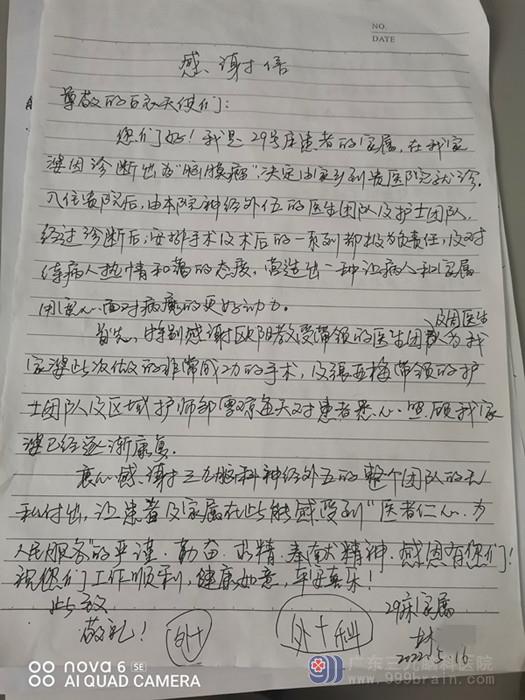 NO.
DATE
感谢信
尊敬的白衣天使们:
您们好!我是29号床患者的家属,在我家
婆因诊断出为"脑膜瘤"决定由家乡到贵医院就诊.
入住贵院后,由本院神经外五的医生团队及护士团队,
经过诊断后,安排手术及术后的一系列都极为负责任,及对
待病人热情和蔼的态度,营造出一种让病人和家属
用安心面对病魔的更好动力。
及周医生
首先,特别感谢欧阳教授带领的医生团队为我
家婆此次做的非常成功的手术,及张亚梅带领的护
士团队及区域护师邹雪琼每天对患者悉心照顾我家
婆已经逐渐康复.
衷心感谢三九脑科神经外五的整个团队的无
私付出,让患者及家属在此能感受到"医者仁心,为
人民服务"的严谨、勤奋、求精、奉献精神.感恩有您们!
祝您们工作顺利,健康如意,平安喜乐!
此致
敬礼!
外十
外十科
29床家属
2022.5.16
nova 6 SE
AI QUAD CAMERA
广东三九脑科医院
www.999brain.com